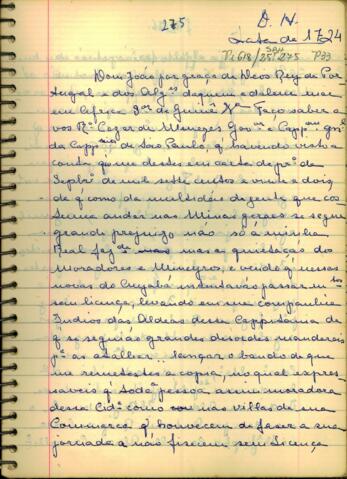 275
D. N.
Lata de 1724
Ti 618/25 275 P33
Dom João por graça de Deos Rey de Por
tugal e dos Algs daquem e dalem mar
em Africa Sor de Guiné &a Faço saber a
vos Ro Cezar de Menezes Govor e Cappam Gnl
da Cappnia de São Paulo, q havendo visto a
conta q me destes em carta de pro de
Septbro de mil sette centos e vinte e dois
de q como da multidão da gente que cos
tuma andar nas Minas geraes se segue
grande prejuizo não só á minha
Real fazda mas a quietação dos
Moradores e Mineyros, e vendo q nessas
novas do Cuyabá intentavão passar mtos
sem licença, levando em sua companhia
Indios das Aldeas dessa Cappitania de
q se seguião grandes desordes mandareis
pa as atalhar lançar o bando de que
me remetestes a copia, no qual expres
saveis q toda pessoa assim moradora
dessa Cide como nas villas de sua
Commarca q houvecem de fazer a sua
jornada a não fisecem sem Licença